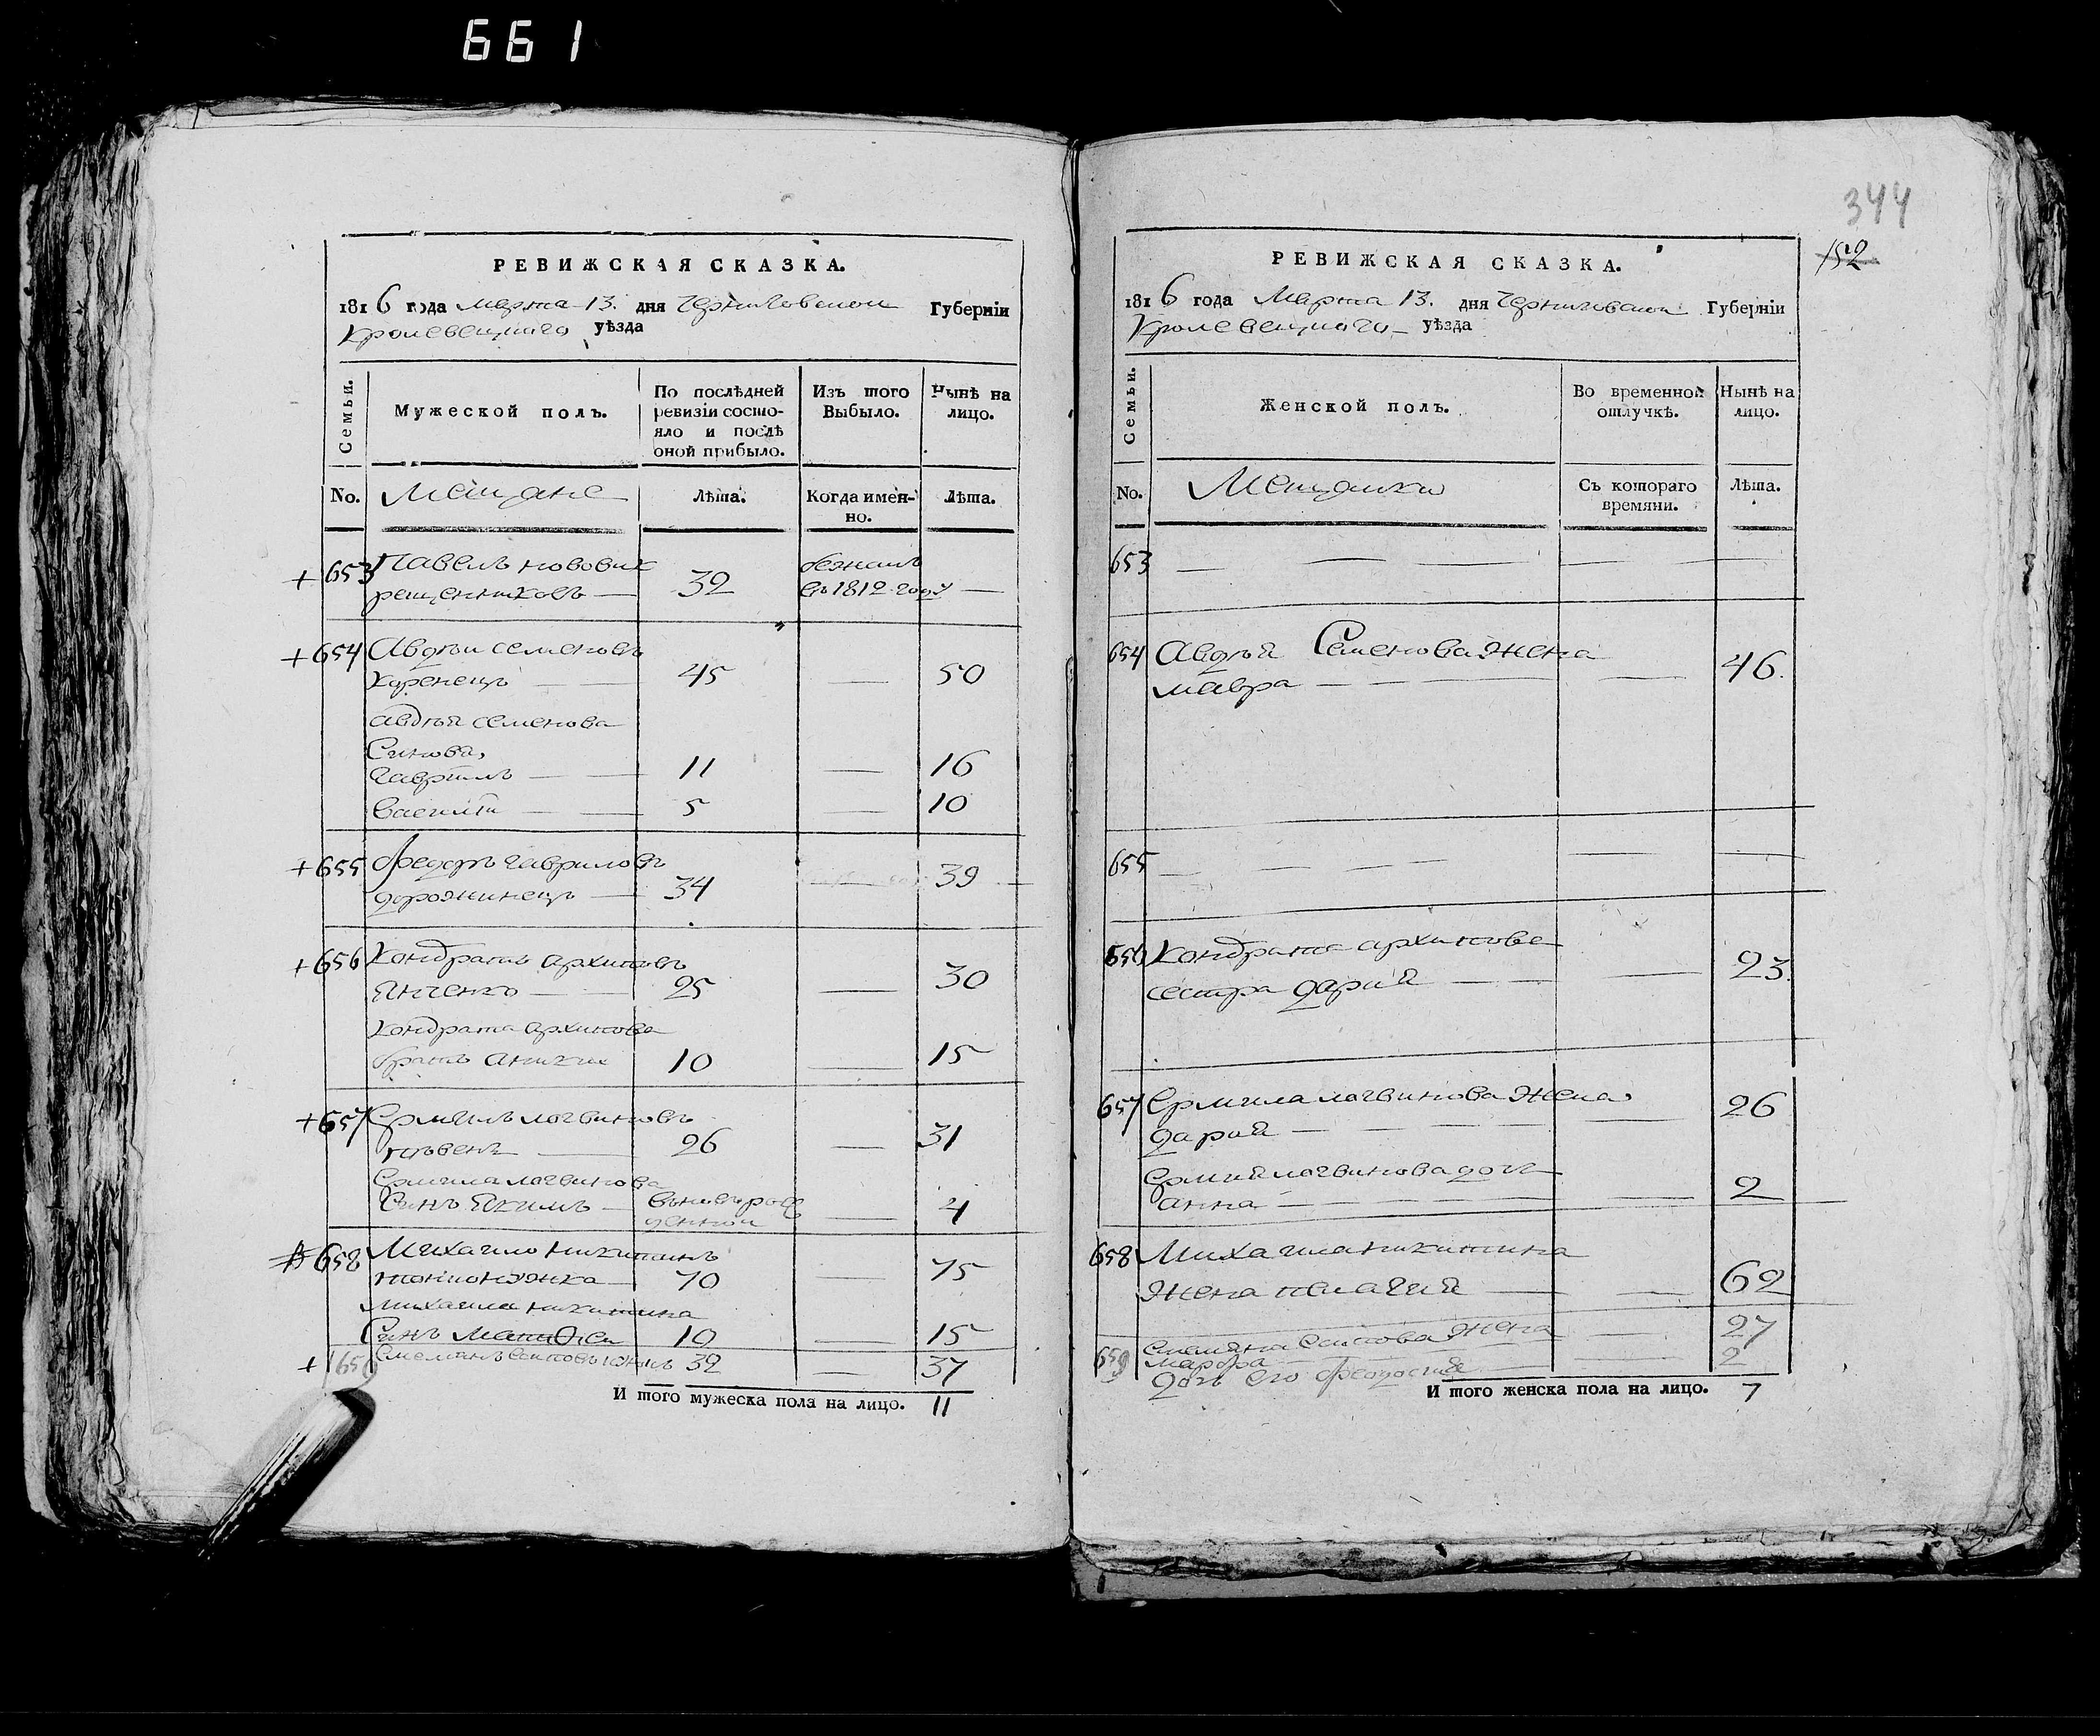 661
РЕВИЖСКАЯ СКАЗКА.
1816 года марта 13. дня Черниговской Губерніи
Кролевецкаго уѣзда
Семьи.
Мужеской полъ.
По послѣдней ревизіи состояло и послѣ оной прибыло.
Изъ того Выбыло.
Нынѣ на лицо.
No.
Мещане
Лѣта.
Когда именно.
Лѣта.
+ 653 Павелъ новови
рещенниковъ — 32 бежалъ въ 1812 году —
+ 654 Авдѣй семеновъ
Коренецъ — 45 — 50
авдѣя семенова
Синова,
гаврилъ — 11 — 16
Василій — 5 — 10
+ 655 Федоръ гавриловъ
дорожинецъ — 34 — 39
+ 656 Кондратъ архиповъ
Янченко — 25 — 30
Кондрата архипова
братъ аники 10 — 15
+ 657 Ермилъ логвиновъ
26 — 31
Ермила логвинова
Синъ Якимъ — 4
658 Михайло никитинъ
70 — 75
михаила никитина
Синъ 10 — 15
+ 659 32 — 37
И того мужеска пола на лицо. 11
344
152
РЕВИЖСКАЯ СКАЗКА.
1816 года Марта 13. дня Черниговской Губерніи
Кролевецкаго уѣзда
Семьи.
Женской полъ.
Во временной отлучкѣ.
Нынѣ на лицо.
No.
Мещанки
Съ котораго времяни.
Лѣта.
653 —
654 Авдѣя Семенова жена
мавра — 46.
655 —
656 Кондрата архипова
сестра дарія — 23.
657 Ермила логвинова жена
дарія — 26
Ермила логвинова дочь
анна — 2
658 Михаила никитина
жена пелагия — 62
659 жена
марфа — 27
дочь его феодосия 2
И того женска пола на лицо. 7